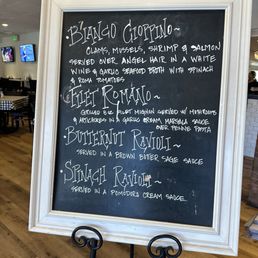 • Bianco Cioppino ~
Clams, Mussels, Shrimp & Salmon
served over angel hair in a white
wine & garlic seafood broth with spinach
& roma tomatoes
• Filet Romano ~
Grilled 8oz filet mignon served w/ mushrooms
& artichokes in a garlic cream marsala sauce
over penne pasta
• Butternut Ravioli ~
served in a brown bitter sage sauce
• Spinach Ravioli ~
served in a pomodoro cream sauce